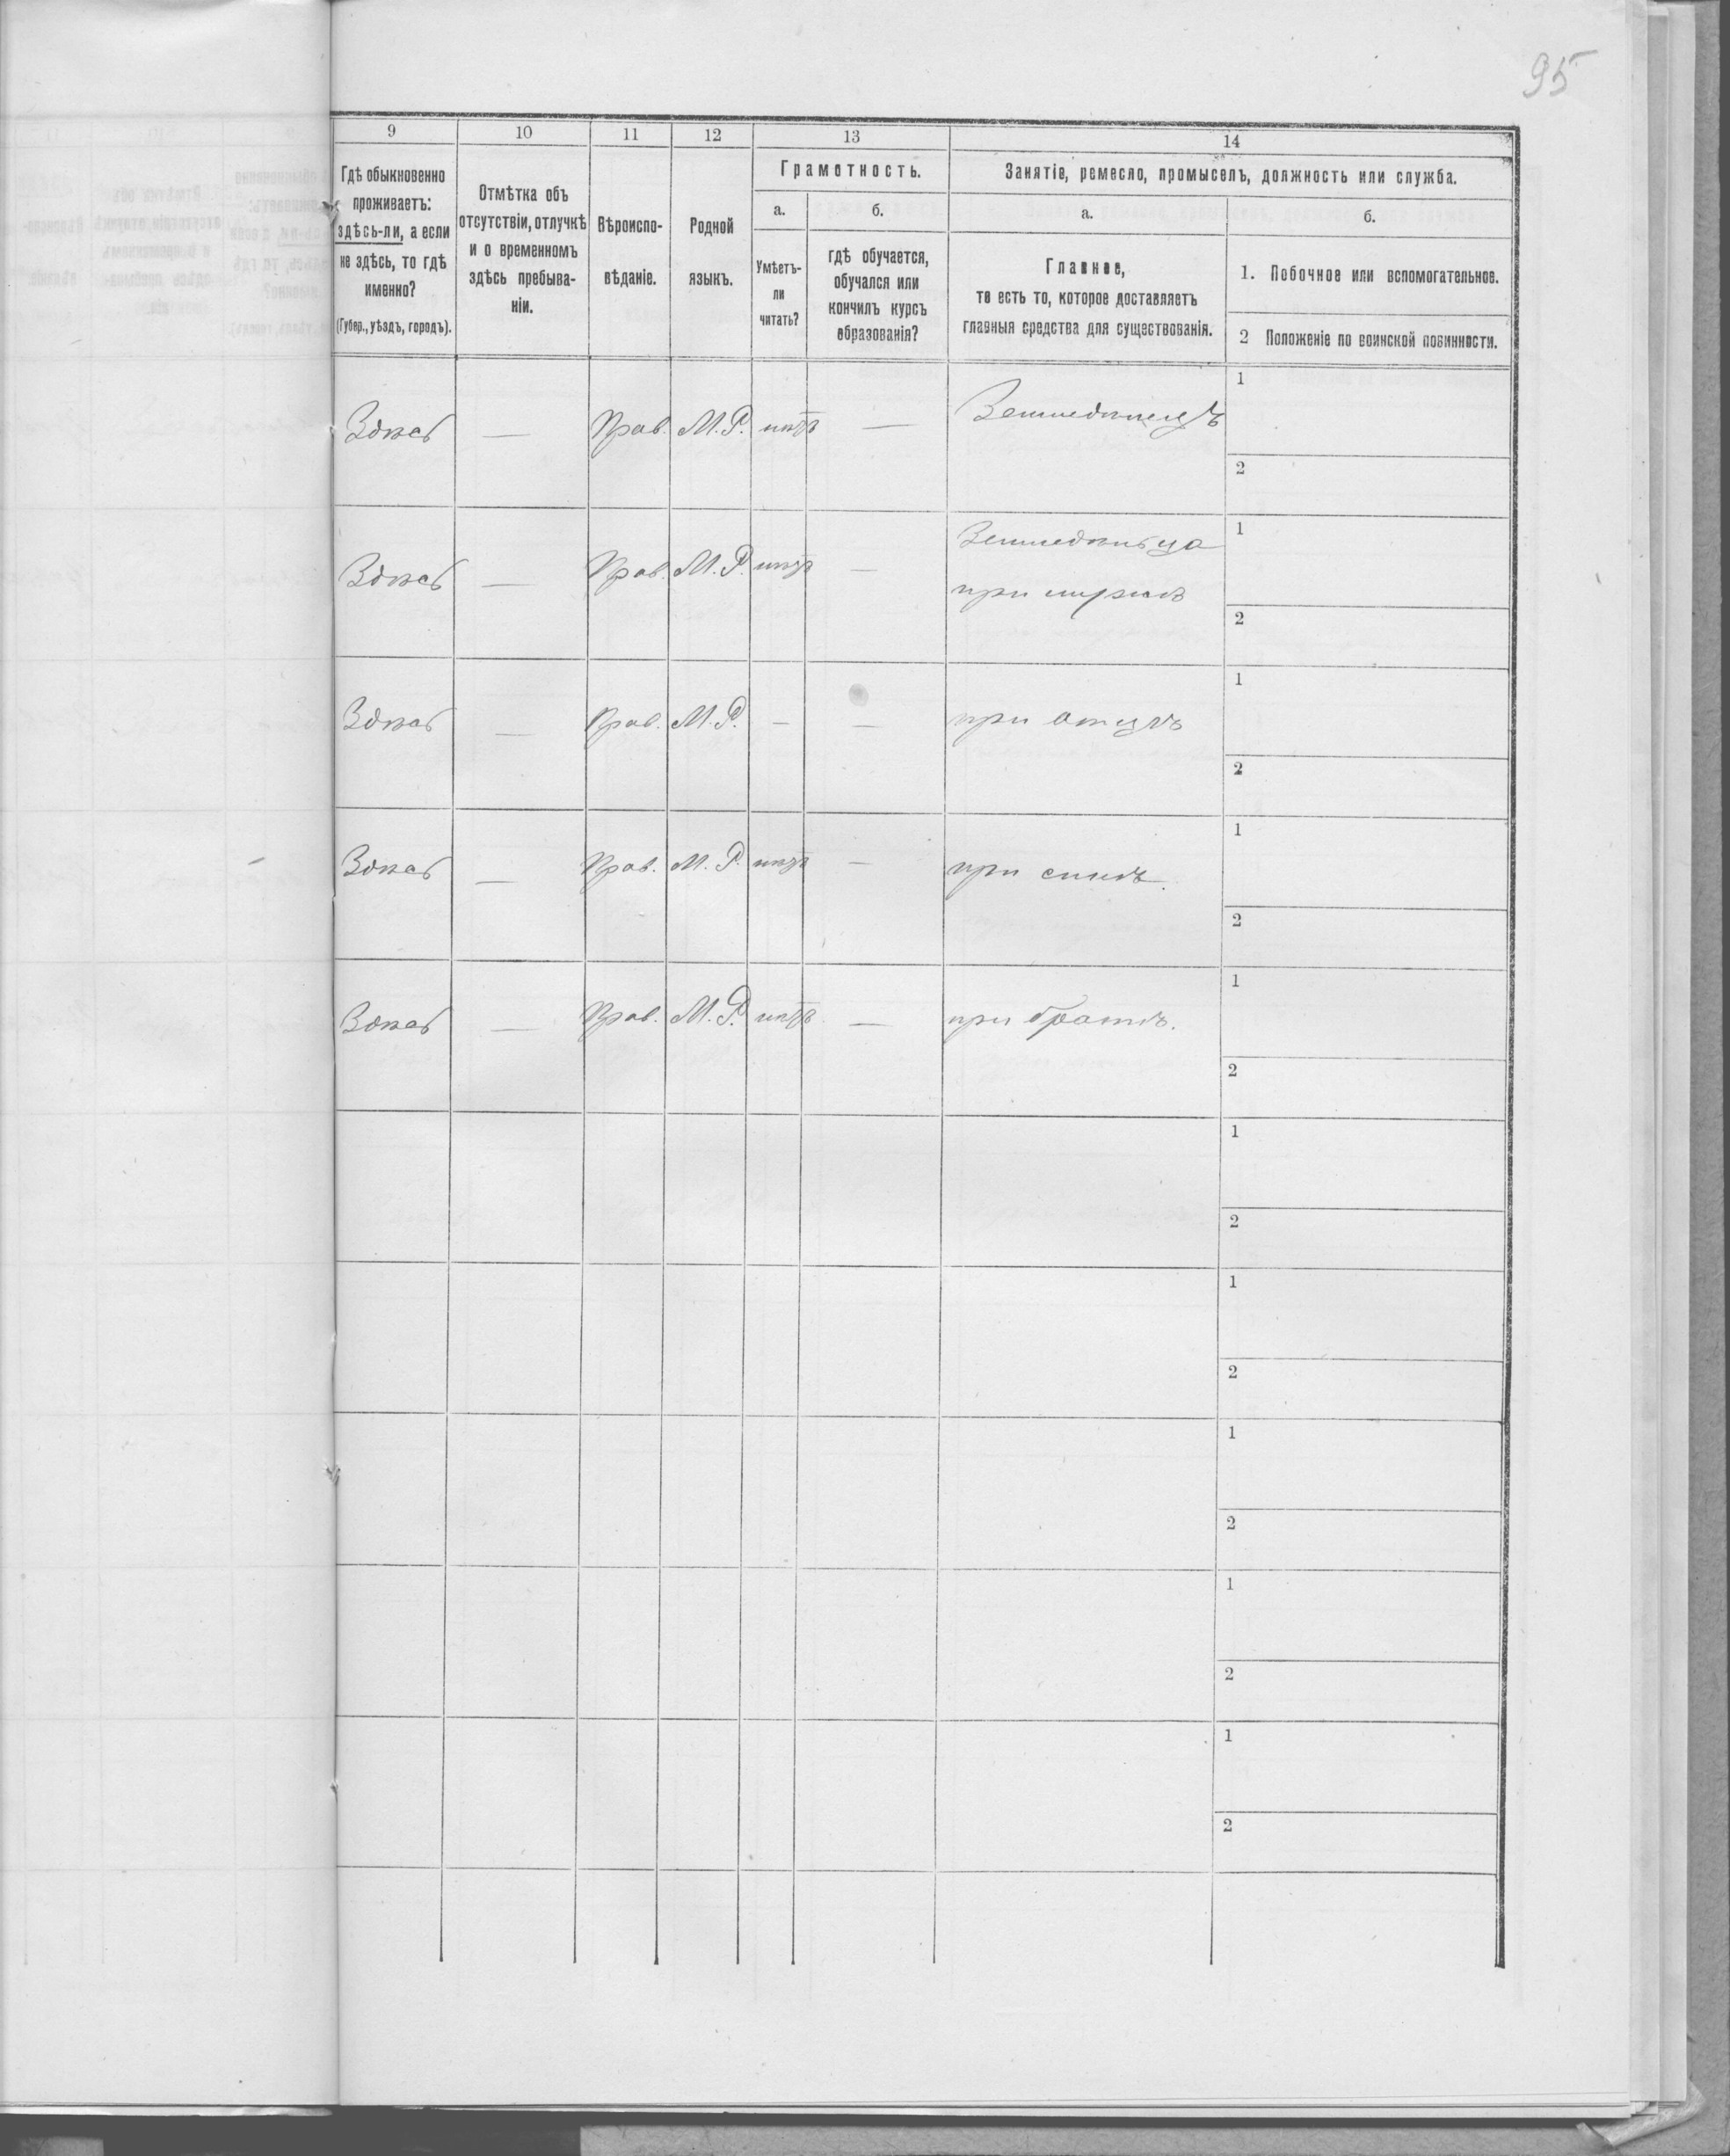 95
9 10 11 12 13 14
Гдѣ обыкновенно
проживаетъ:
здѣсь-ли, а если
не здѣсь, то гдѣ
именно?
(Губер., уѣздъ, городъ).
Отмѣтка объ
отсутствіи, отлучкѣ
и о временномъ
здѣсь пребыва-
ніи.
Вѣроиспо-
вѣданіе.
Родной
языкъ.
Грамотность.
а. б.
Умѣетъ-
ли
читать?
гдѣ обучается,
обучался или
кончилъ курсъ
образованія?
Занятіе, ремесло, промыселъ, должность или служба.
а. б.
Главное,
то есть то, которое доставляетъ
главныя средства для существованія.
1. Побочное или вспомогательное.
2 Положеніе по воинской повинности.
Здѣсь — Прав. М.Р. нѣтъ — Земледѣлецъ 1
2
Здѣсь — Прав. М.Р. нѣтъ — Земледѣльца 1
при мужѣ
2
Здѣсь — Прав. М.Р. — — при отцѣ 1
2
Здѣсь — Прав. М.Р. нѣтъ — при сынѣ. 1
2
Здѣсь — Прав. М.Р. нѣтъ — при братѣ. 1
2
1
2
1
2
1
2
1
2
1
2